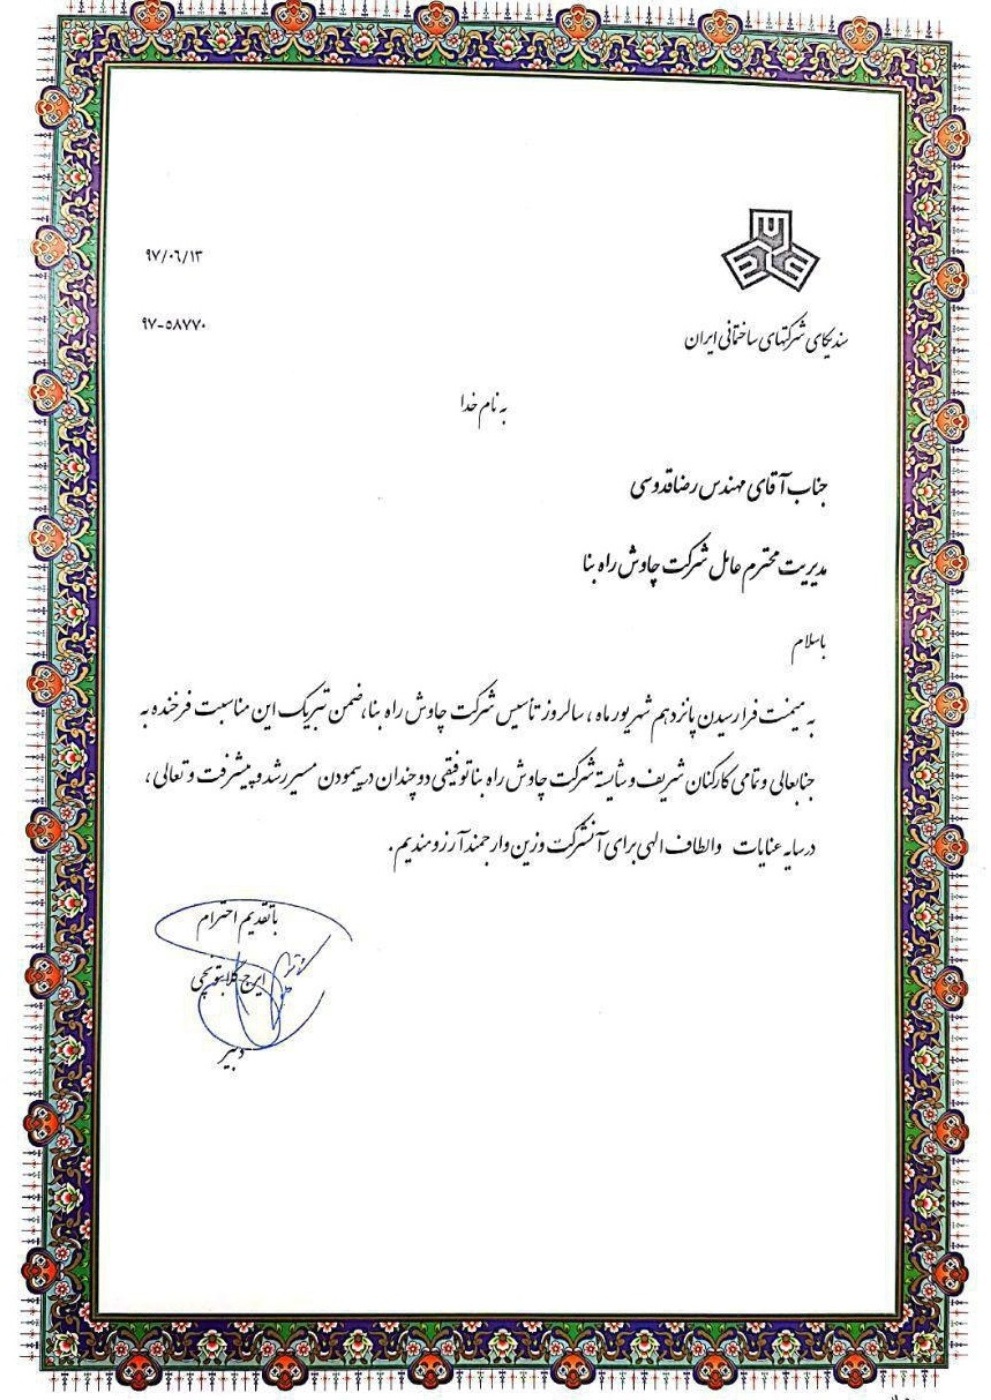 ۹۷/۰۶/۱۳
۹۷-۵۸۷۷۰
سندیکای شرکتهای ساختمانی ایران
به نام خدا
جناب آقای مهندس رضا قدوسی
مدیریت محترم عامل شرکت چاوش راه بنا
باسلام
به میمنت فرا رسیدن پانزدهم شهریور ماه ، سالروز تأسیس شرکت چاوش راه بنا، ضمن تبریک این مناسبت فرخنده به
جنابعالی و تمامی کارکنان شریف و شایسته شرکت چاوش راه بنا توفیقی دوچندان در پیمودن مسیر رشد و پیشرفت و تعالی ،
در سایه عنایات والطاف الهی برای آنشرکت وزین و ارجمند آرزومندیم .
با تقدیم احترام
ایرج گلابتونچی
دبیر